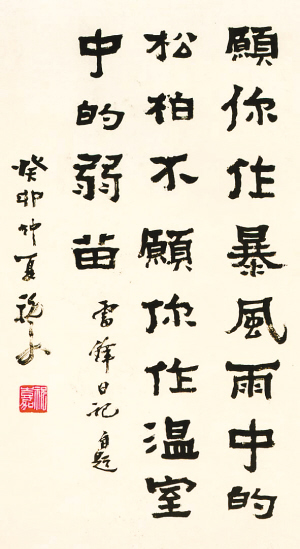 願你作暴風雨中的
松柏不願你作温室
中的弱苗
雷鋒日記
癸卯仲夏